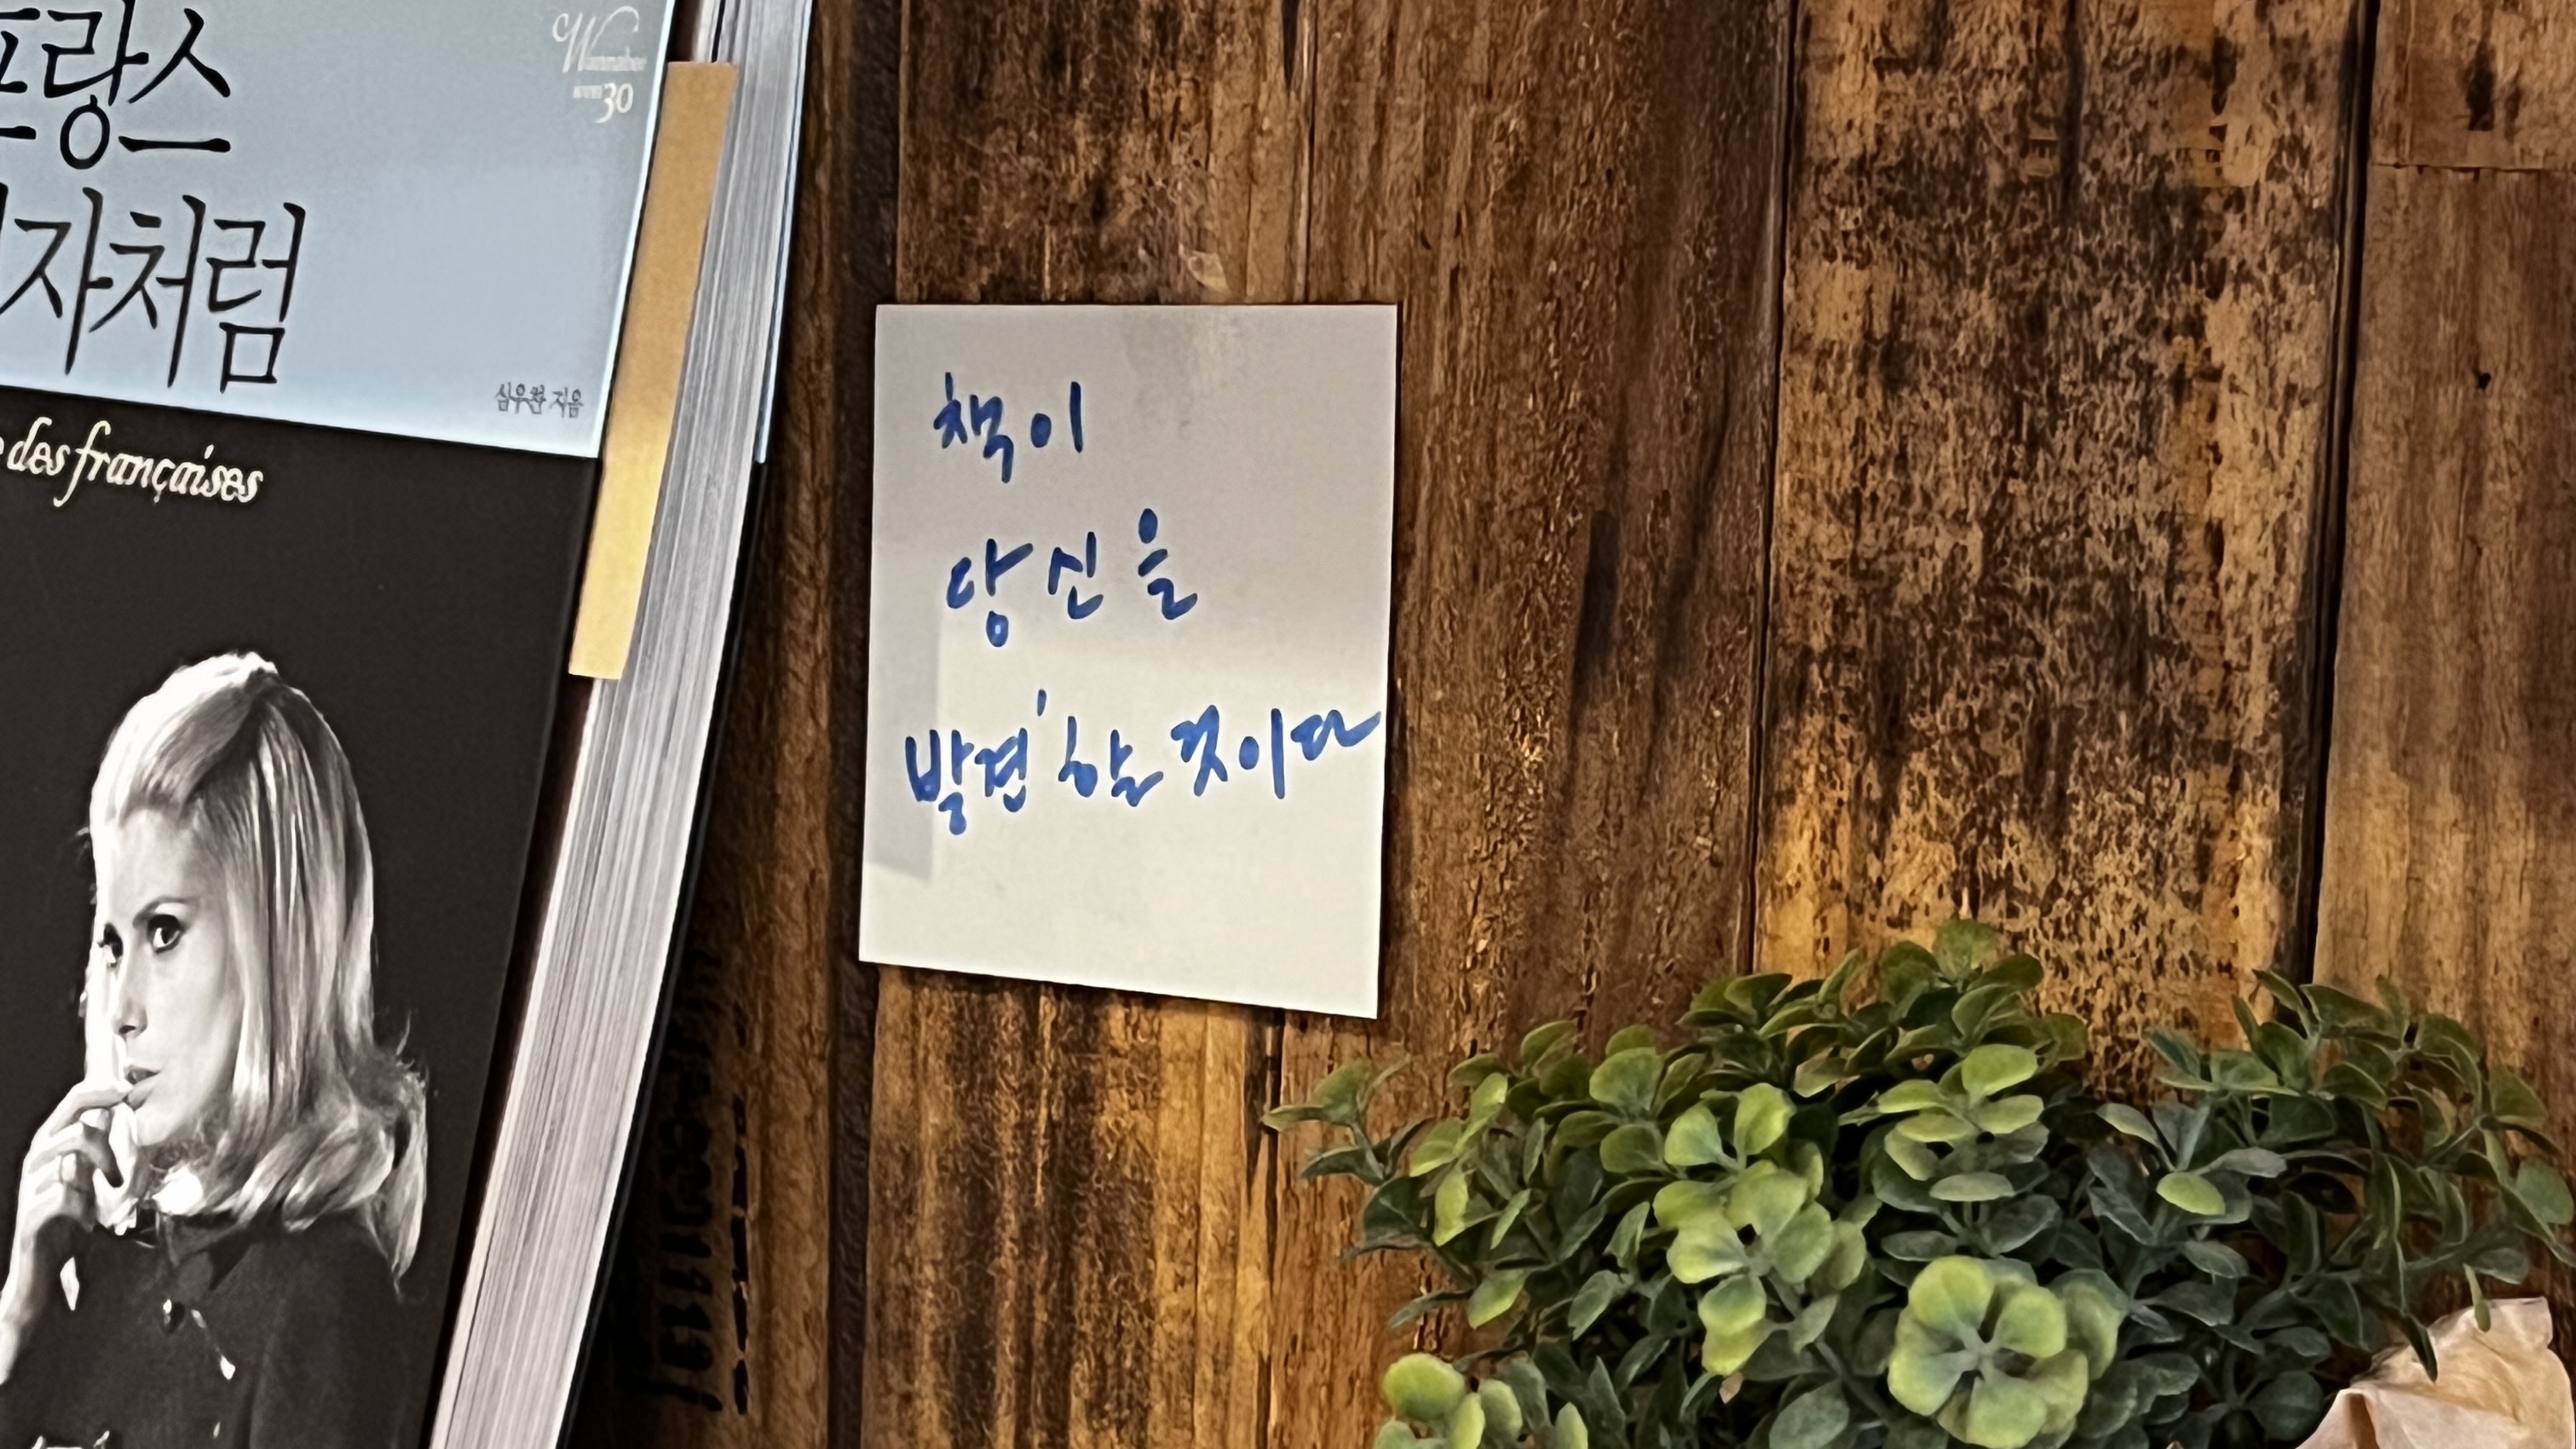 프랑스
자처럼
Wannabee
30
심우찬 지음
des françaises
책이
당신을
발견할 것이다